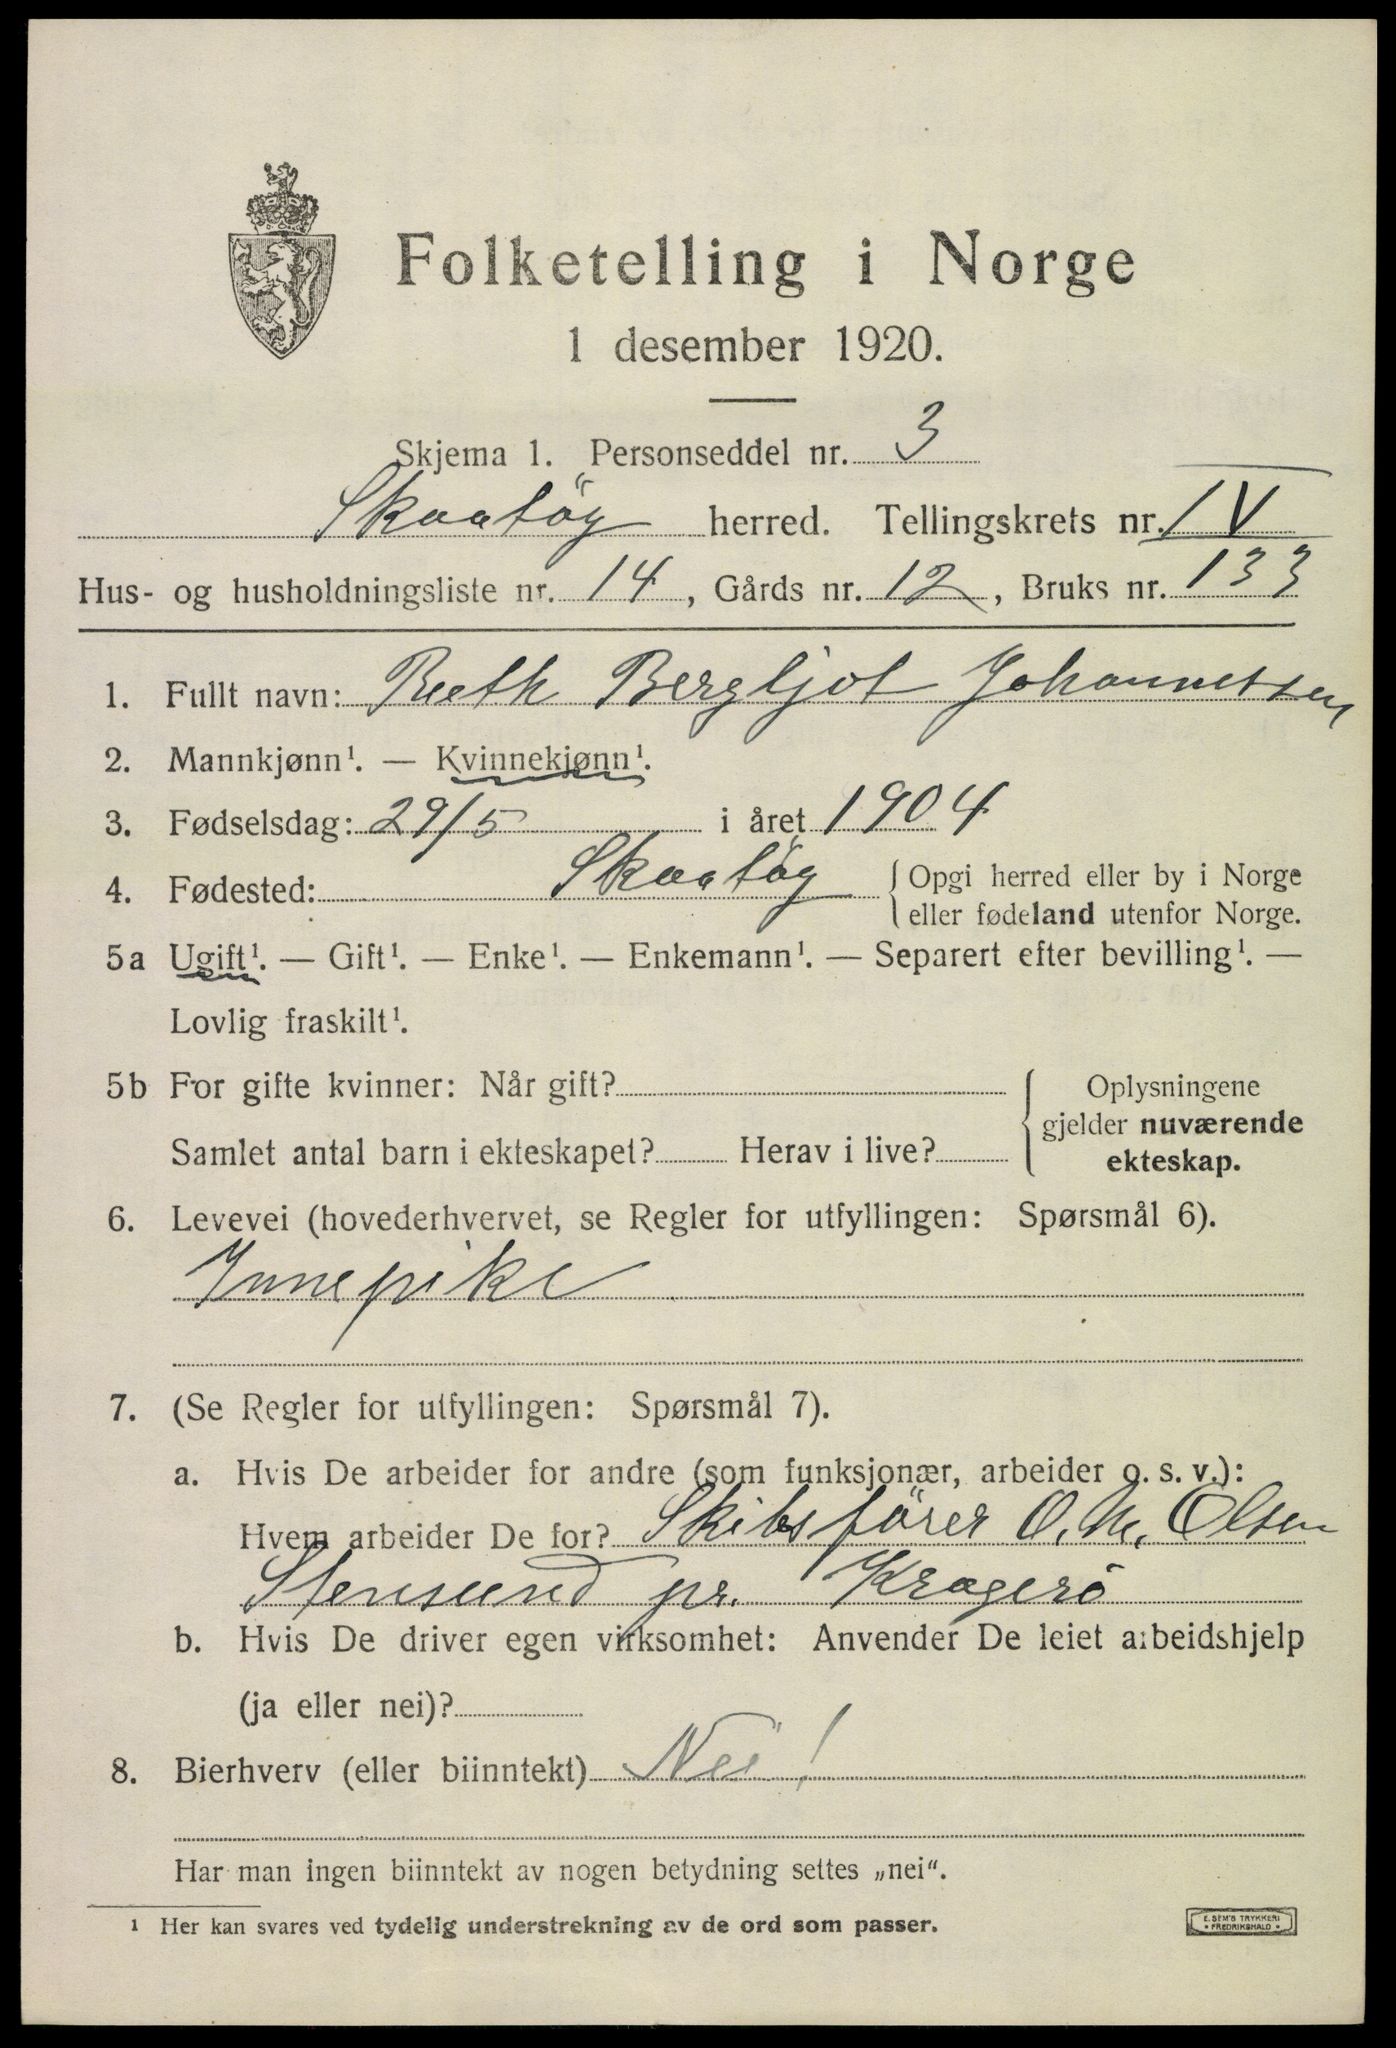 Folketelling i Norge
1 desember 1920.
Skjema 1. Personseddel nr. 3
Skaatöy herred. Tellingskrets nr. IV
Hus- og husholdningsliste nr. 14, Gårds nr. 12, Bruks nr. 133
1. Fullt navn: Ruth Bergljot Johannessen
2. Mannkjønn¹. — Kvinnekjønn¹.
3. Fødselsdag: 29/5 i året 1904
4. Fødested: Skaatöy { Opgi herred eller by i Norge
eller fødeland utenfor Norge.
5a Ugift¹. — Gift¹. — Enke¹. — Enkemann¹. — Separert efter bevilling¹. —
Lovlig fraskilt¹.
5b For gifte kvinner: Når gift? { Oplysningene
gjelder nuværende
Samlet antal barn i ekteskapet? Herav i live? ekteskap.
6. Levevei (hovederhvervet, se Regler for utfyllingen: Spørsmål 6).
Innepike
7. (Se Regler for utfyllingen: Spørsmål 7).
a. Hvis De arbeider for andre (som funksjonær, arbeider o. s. v.):
Hvem arbeider De for? Skibsförer O. M. Olsen
Stensund pr. Kragerö
b. Hvis De driver egen virksomhet: Anvender De leiet arbeidshjelp
(ja eller nei)?
8. Bierhverv (eller biinntekt) Nei!
Har man ingen biinntekt av nogen betydning settes „nei".
¹ Her kan svares ved tydelig understrekning av de ord som passer.
E. SEM'S TRYKKERI
• FREDRIKSHALD •